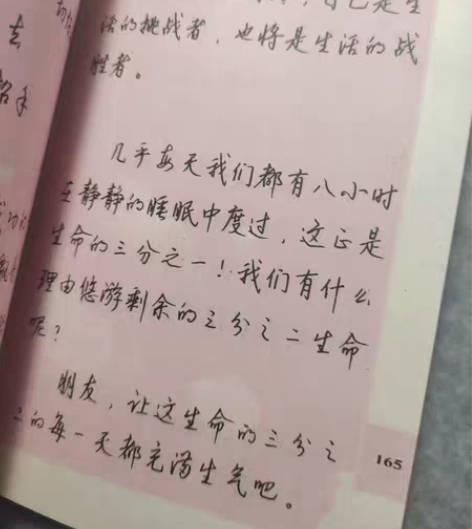 自己是生
活的挑战者，也将是生活的战
胜者。
几乎每天我们都有八小时
在静静的睡眠中度过，这正是
生命的三分之一！我们有什么
理由悠游剩余的三分之二生命
呢？
朋友，让这生命的三分之
二的每一天都充满生气吧。
165